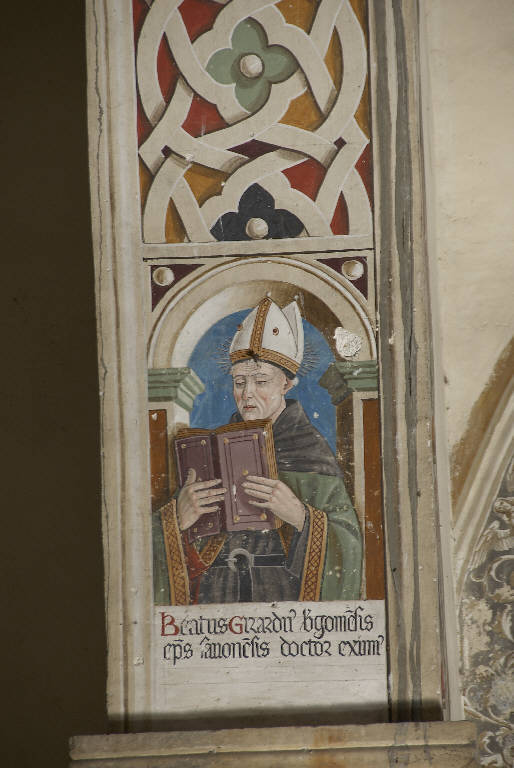 Beatus Girardu᷒ b̄gomēsis
ep̄s sauonēsis doctor eximi᷒